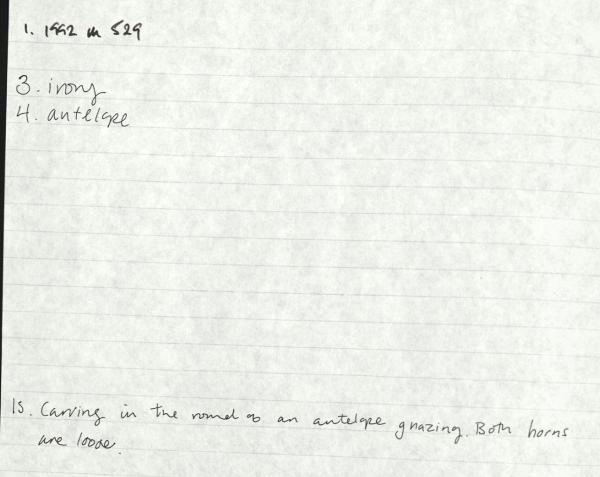 1. 1992 m 529
3. irony
4. antelope
15. Carving in the round of an antelope grazing. Both horns
are loose.